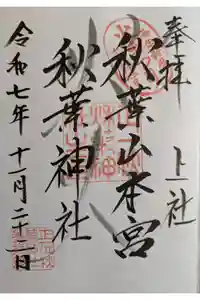 奉拝
上社
秋葉山本宮
秋葉神社
令和七年十一月二十二日